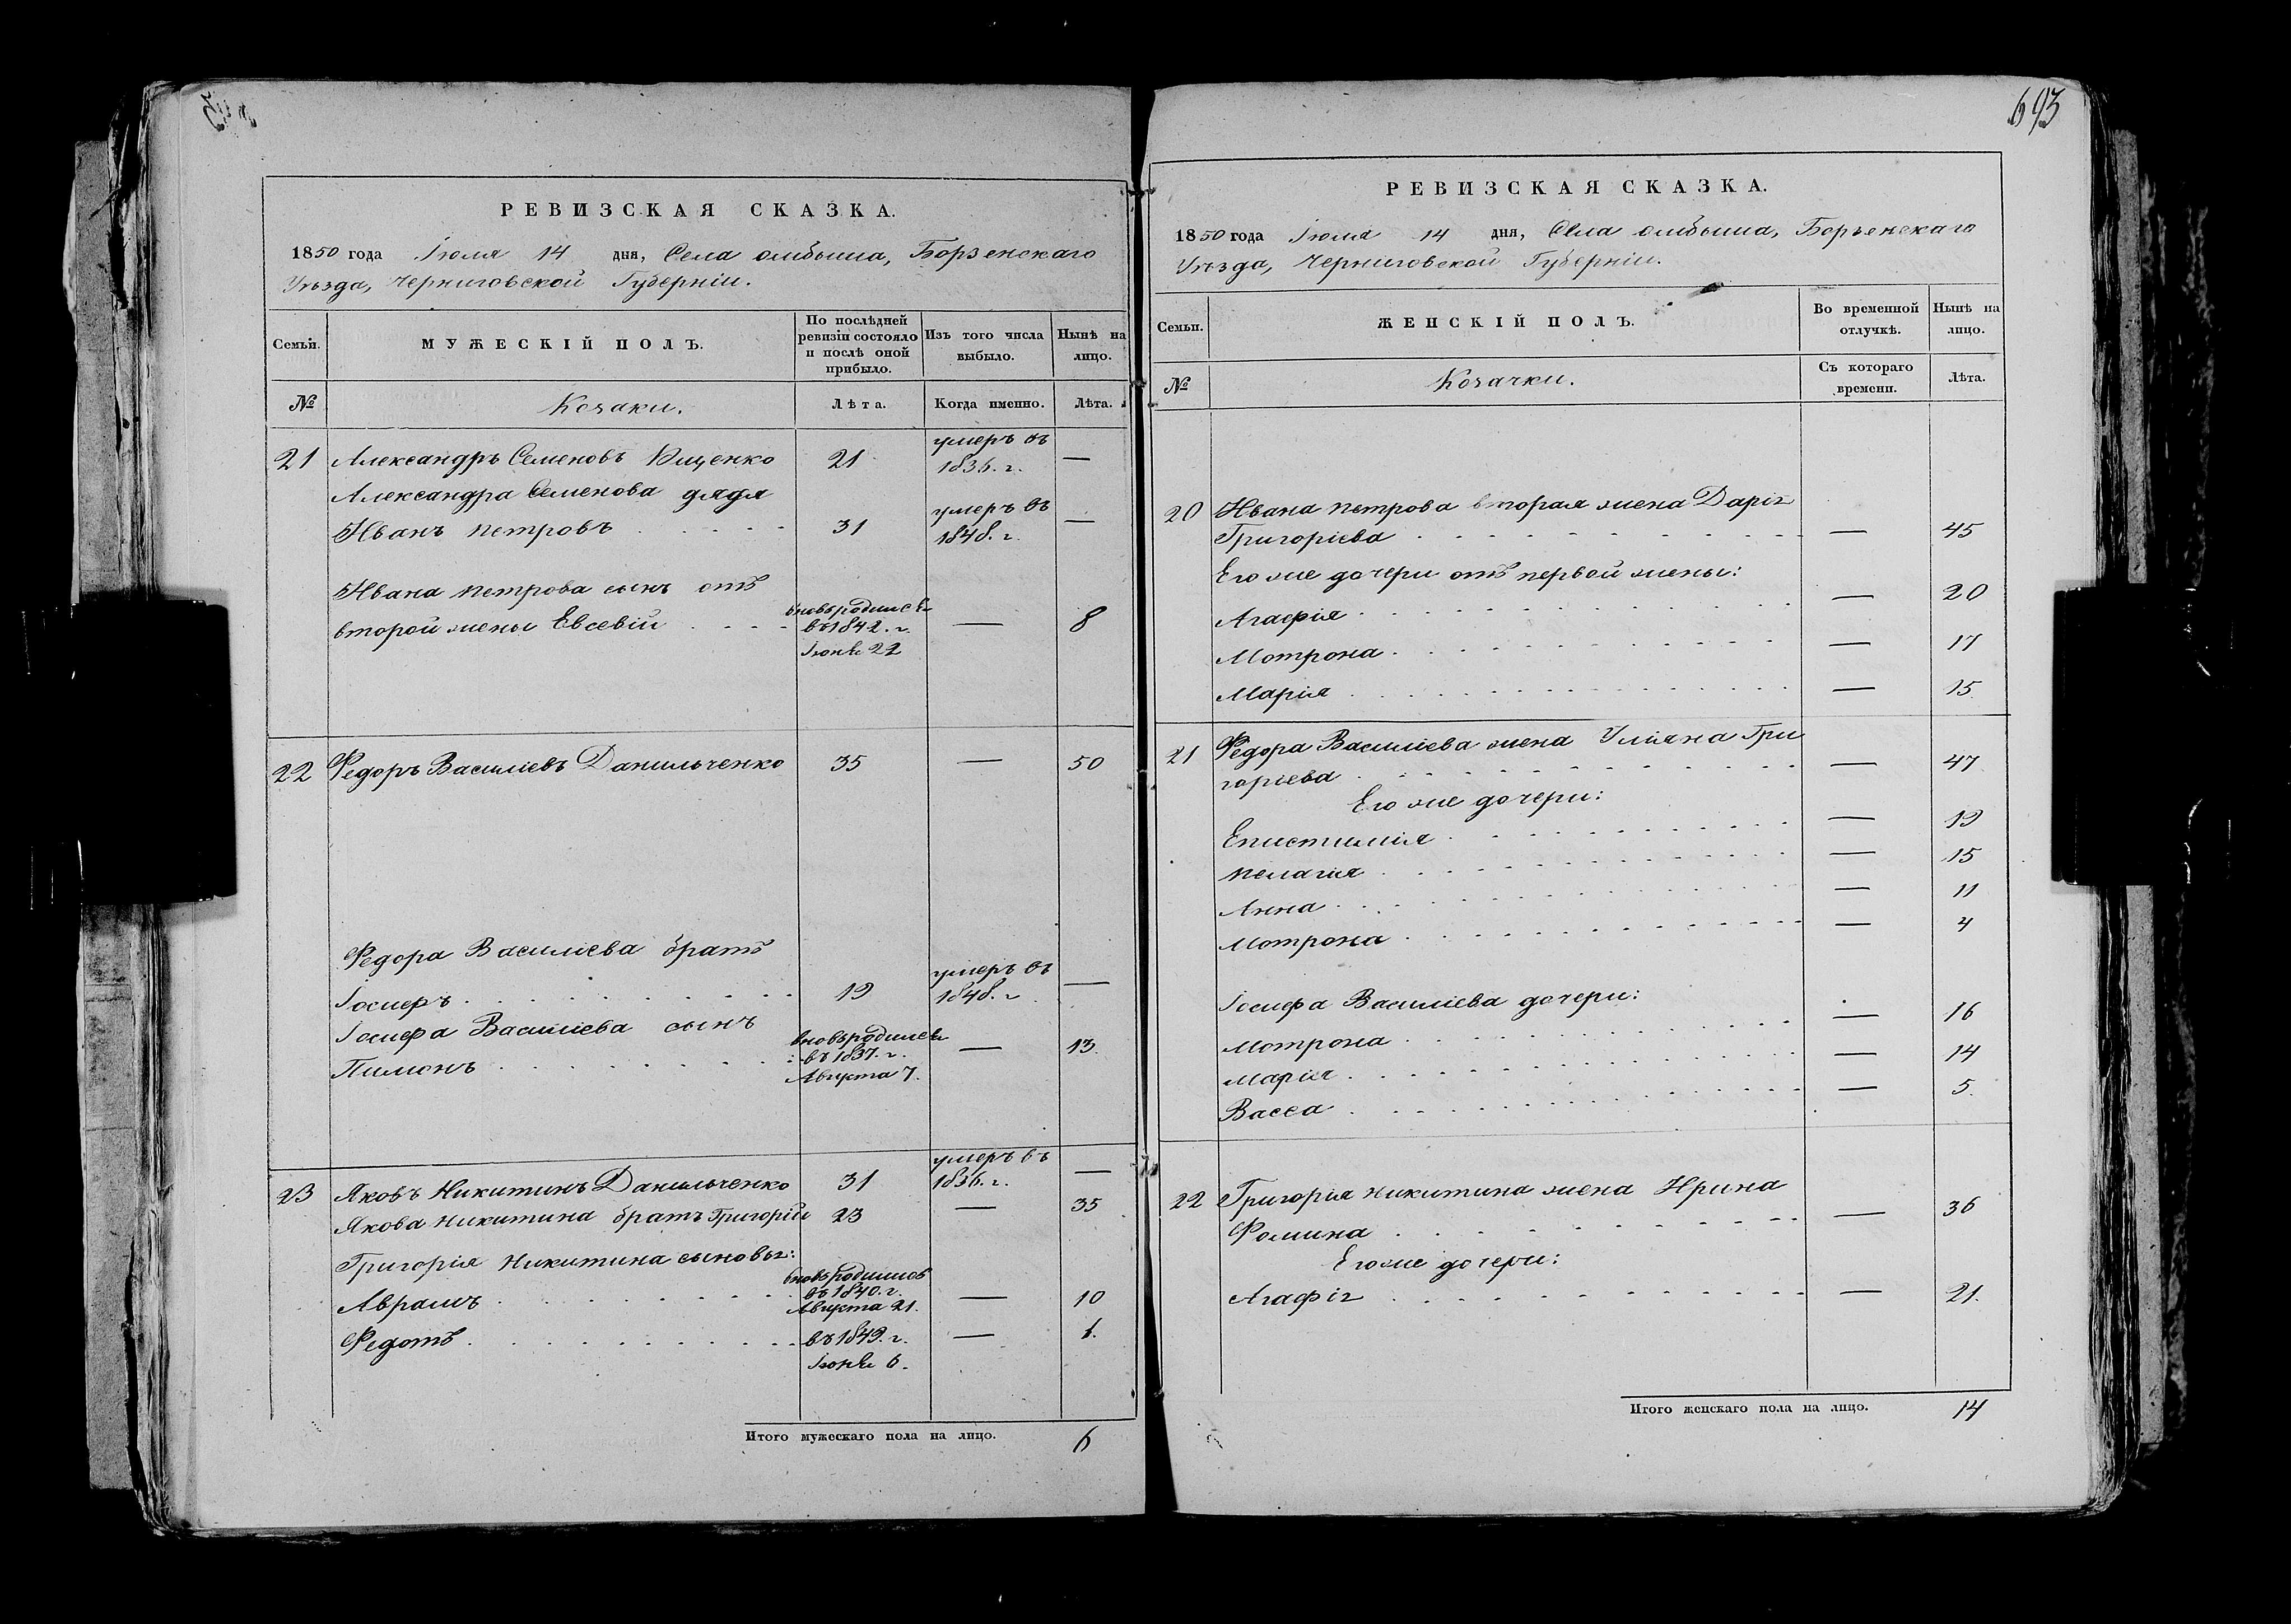 693
РЕВИЗСКАЯ СКАЗКА.
1850 года Іюля 14 дня, Села Омбыша, Борзенскаго
Уѣзда, Черниговской Губерніи.
Семьи.
МУЖЕСКІЙ ПОЛЪ.
По послѣдней
ревизіи состояло
и послѣ оной
прибыло.
Изъ того числа
выбыло.
Нынѣ на
лицо.
№
Козаки.
Лѣта.
Когда именно.
Лѣта.
умеръ въ
21 Александръ Семеновъ Ищенко 21 1836. г. —
Александра Семенова дядя
умеръ въ
Иванъ Петровъ 31 1848. г. —
Ивана Петрова сынъ отъ
вновьродился
второй жены Евсевій въ 1842. г. — 8
Іюня 22
22 Федоръ Василіевъ Данильченко 35 — 50
Федора Василіева братъ
умеръ въ
Іосифъ 19 1848. г. —
Іосифа Василіева сынъ
вновьродился
Пименъ въ 1837. г. — 13.
Августа 7.
умеръ въ
23 Яковъ Никитинъ Данильченко 31 1836. г. —
Якова Никитина братъ Григорій 23 — 35
Григорія Никитина сыновья:
вновьродился
Аврамъ въ 1840. г. — 10
Августа 21.
Федотъ въ 1849. г. — 1.
Іюня 6.
Итого мужескаго пола на лицо. 6
РЕВИЗСКАЯ СКАЗКА.
1850 года Іюля 14 дня, Села Омбыша, Борзенскаго
Уѣзда, Черниговской Губерніи.
Семьи.
ЖЕНСКІЙ ПОЛЪ.
Во временной
отлучкѣ.
Нынѣ на
лицо.
№
Козачки.
Съ котораго
времени.
Лѣта.
20 Ивана Петрова вторая жена Дарія
Григоріева — 45
Его же дочери отъ первой жены:
Агафія — 20
Мотрона — 17
Марія — 15.
21 Федора Василіева жена Уліяна Гри
горіева — 47
Его же дочери:
Епистимія — 19
Пелагія — 15
Анна — 11
Мотрона — 4
Іосифа Василіева дочери:
Мотрона — 16
Марія — 14
Васса — 5.
22 Григорія Никитина жена Ирина
Фомина — 36
Его же дочери:
Агафія — 21.
Итого женскаго пола на лицо. 14